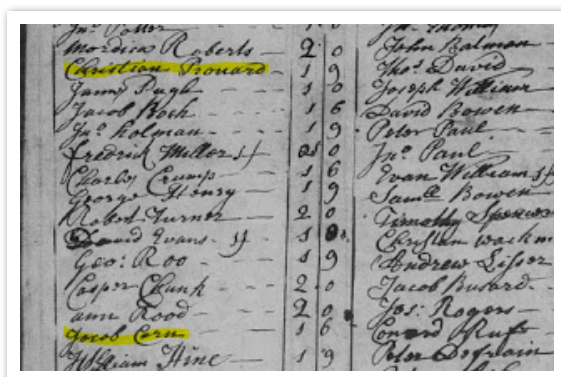 Jnº Potter
Mordica Roberts — 2 0
Christian Prouard - 1 9
James Pugh - 1 0
Jacob Roch - 1 6
Jnº Holman - 1 9
Fredrick Miller 2 0
Charles Crump - 1 6
George Henry - 1 9
Robert Turner - 2 0
David Evans 1
Geo: Roo - 1 9
Casper Chunk - 2 0
ann Rood - 2 0
Jacob Corn - 1 6
William Hine - 1 9
Jnº Thomas
John Balman
Thoˢ David
Joseph
David Bowen
Peter Paul
Jnº Paul
Evan William
Samll Bowen
Timothy Spencer
Christian
Andrew
Jacob Busard
Jos: Rogers
Conrod Rufs
Peter Defrain